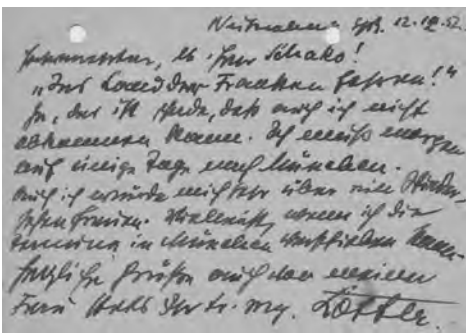 12.10.52.
Herr Schako!
"Ins Land der Franken fahren!"
Ja, das ist schade, daß auch ich nicht
abkommen kann. Ich muß morgen
auf einige Tage nach München.
Auch ich würde mich sehr über ein Wieder-
sehen freuen. Vielleicht, wenn ich die
in München verschieben kann.
Herzliche Grüße auch von meiner
Frau stets Ihr